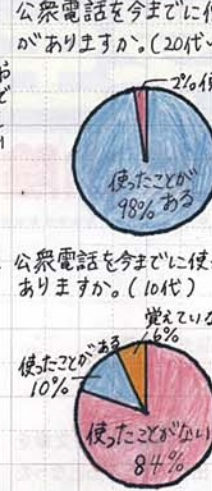 公衆電話を今までに使
がありますか。(20代
2%
使ったことが
98% ある
公衆電話を今までに使
ありますか。(10代)
覚えていな
6%
使ったことがある
10%
使ったことがない
84%